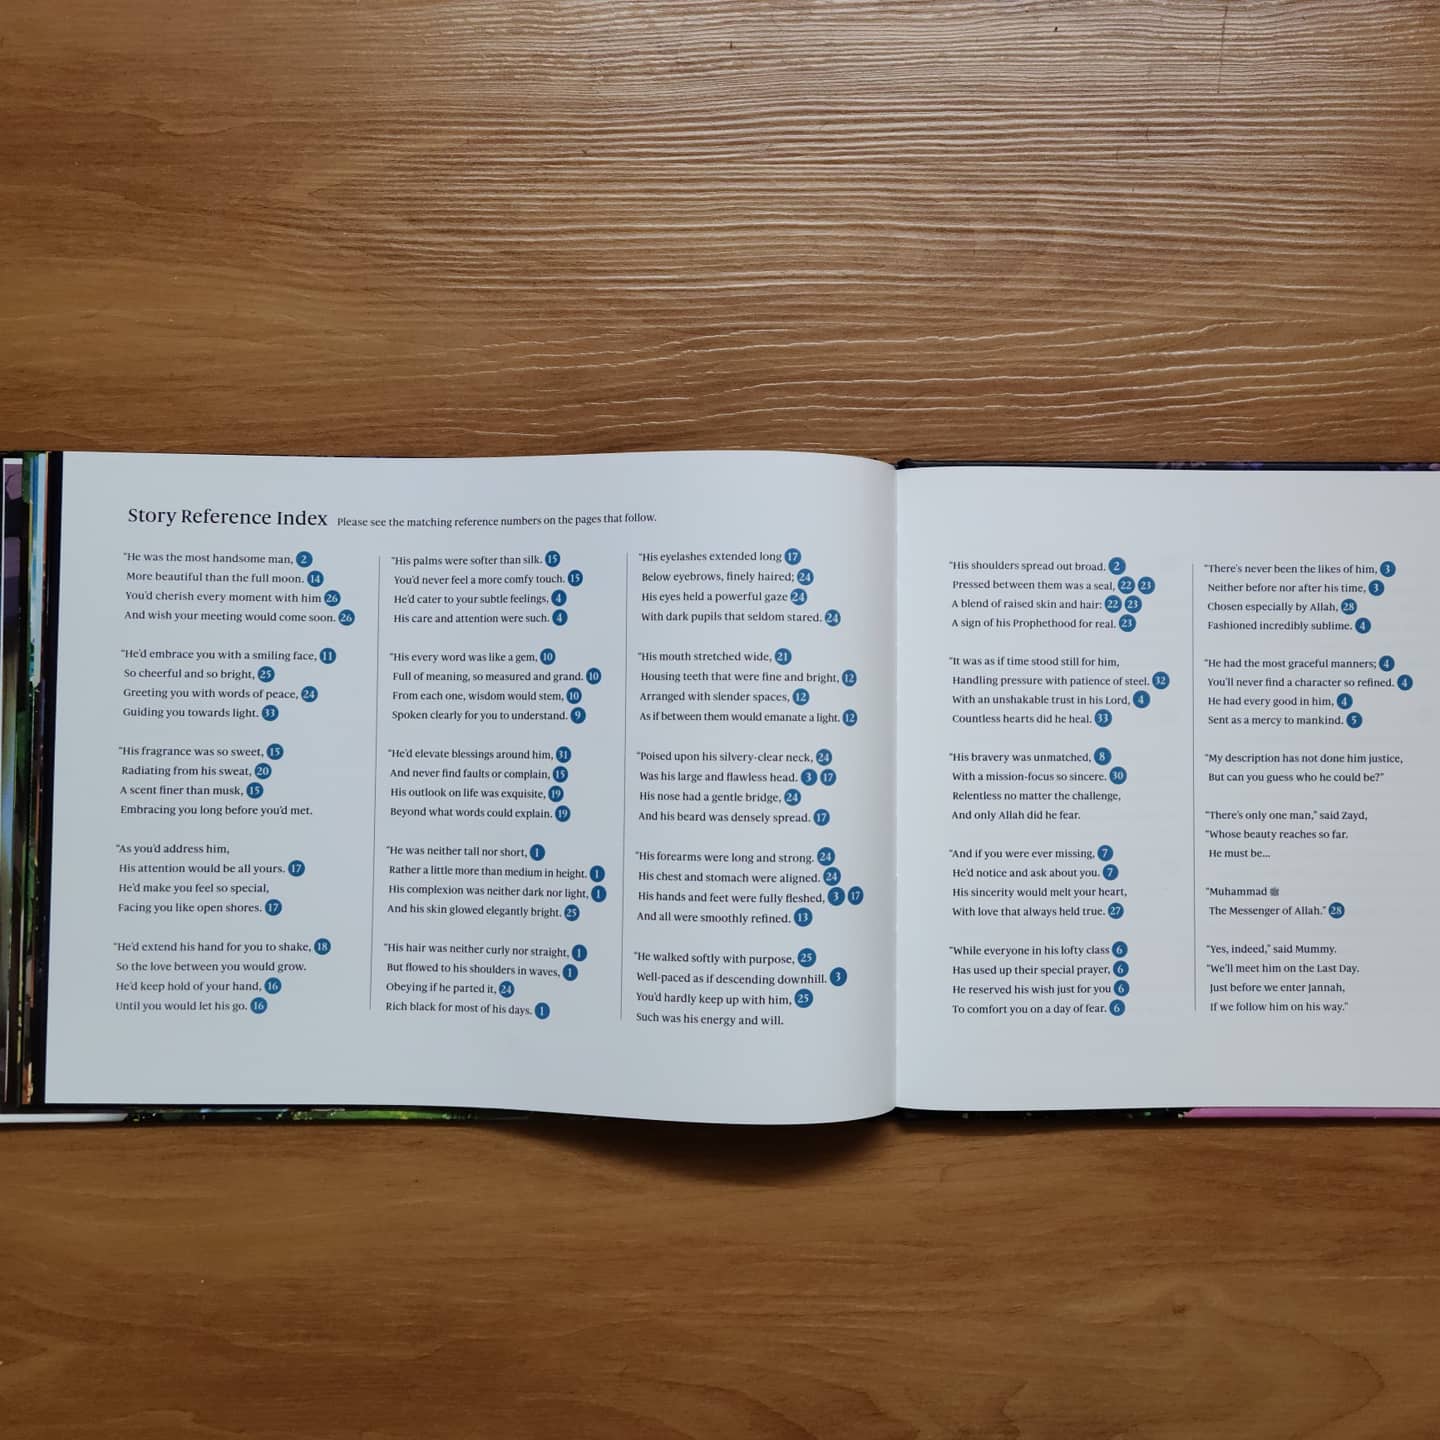 Story Reference Index Please see the matching reference numbers on the pages that follow.
"He was the most handsome man, 2
More beautiful than the full moon. 14
You'd cherish every moment with him 26
And wish your meeting would come soon. 26
"He'd embrace you with a smiling face, 11
So cheerful and so bright, 25
Greeting you with words of peace, 24
Guiding you towards light. 33
"His fragrance was so sweet, 15
Radiating from his sweat, 20
A scent finer than musk, 15
Embracing you long before you'd met.
"As you'd address him,
His attention would be all yours. 17
He'd make you feel so special,
Facing you like open shores. 17
"He'd extend his hand for you to shake, 18
So the love between you would grow.
He'd keep hold of your hand, 16
Until you would let his go. 16
"His palms were softer than silk. 15
You'd never feel a more comfy touch. 15
He'd cater to your subtle feelings, 4
His care and attention were such. 4
"His every word was like a gem, 10
Full of meaning, so measured and grand. 10
From each one, wisdom would stem, 10
Spoken clearly for you to understand. 9
"He'd elevate blessings around him, 31
And never find faults or complain, 15
His outlook on life was exquisite, 19
Beyond what words could explain. 19
"He was neither tall nor short, 1
Rather a little more than medium in height. 1
His complexion was neither dark nor light, 1
And his skin glowed elegantly bright. 25
"His hair was neither curly nor straight, 1
But flowed to his shoulders in waves, 1
Obeying if he parted it, 24
Rich black for most of his days. 1
"His eyelashes extended long 17
Below eyebrows, finely haired; 24
His eyes held a powerful gaze 24
With dark pupils that seldom stared. 24
"His mouth stretched wide, 21
Housing teeth that were fine and bright, 12
Arranged with slender spaces, 12
As if between them would emanate a light. 12
"Poised upon his silvery-clear neck, 24
Was his large and flawless head. 3 17
His nose had a gentle bridge, 24
And his beard was densely spread. 17
"His forearms were long and strong. 24
His chest and stomach were aligned. 24
His hands and feet were fully fleshed, 3 17
And all were smoothly refined. 13
"He walked softly with purpose, 25
Well-paced as if descending downhill. 3
You'd hardly keep up with him, 25
Such was his energy and will.
"His shoulders spread out broad. 2
Pressed between them was a seal, 22 23
A blend of raised skin and hair: 22 23
A sign of his Prophethood for real. 23
"It was as if time stood still for him,
Handling pressure with patience of steel. 32
With an unshakable trust in his Lord, 4
Countless hearts did he heal. 33
"His bravery was unmatched, 8
With a mission-focus so sincere. 30
Relentless no matter the challenge,
And only Allah did he fear.
"And if you were ever missing, 7
He'd notice and ask about you. 7
His sincerity would melt your heart,
With love that always held true. 27
"While everyone in his lofty class 6
Has used up their special prayer, 6
He reserved his wish just for you 6
To comfort you on a day of fear. 6
"There's never been the likes of him, 3
Neither before nor after his time, 3
Chosen especially by Allah, 28
Fashioned incredibly sublime. 4
"He had the most graceful manners; 4
You'll never find a character so refined. 4
He had every good in him, 4
Sent as a mercy to mankind. 5
"My description has not done him justice,
But can you guess who he could be?"
"There's only one man," said Zayd,
"Whose beauty reaches so far.
He must be...
"Muhammad ﷺ
The Messenger of Allah." 28
"Yes, indeed," said Mummy.
"We'll meet him on the Last Day.
Just before we enter Jannah,
If we follow him on his way."